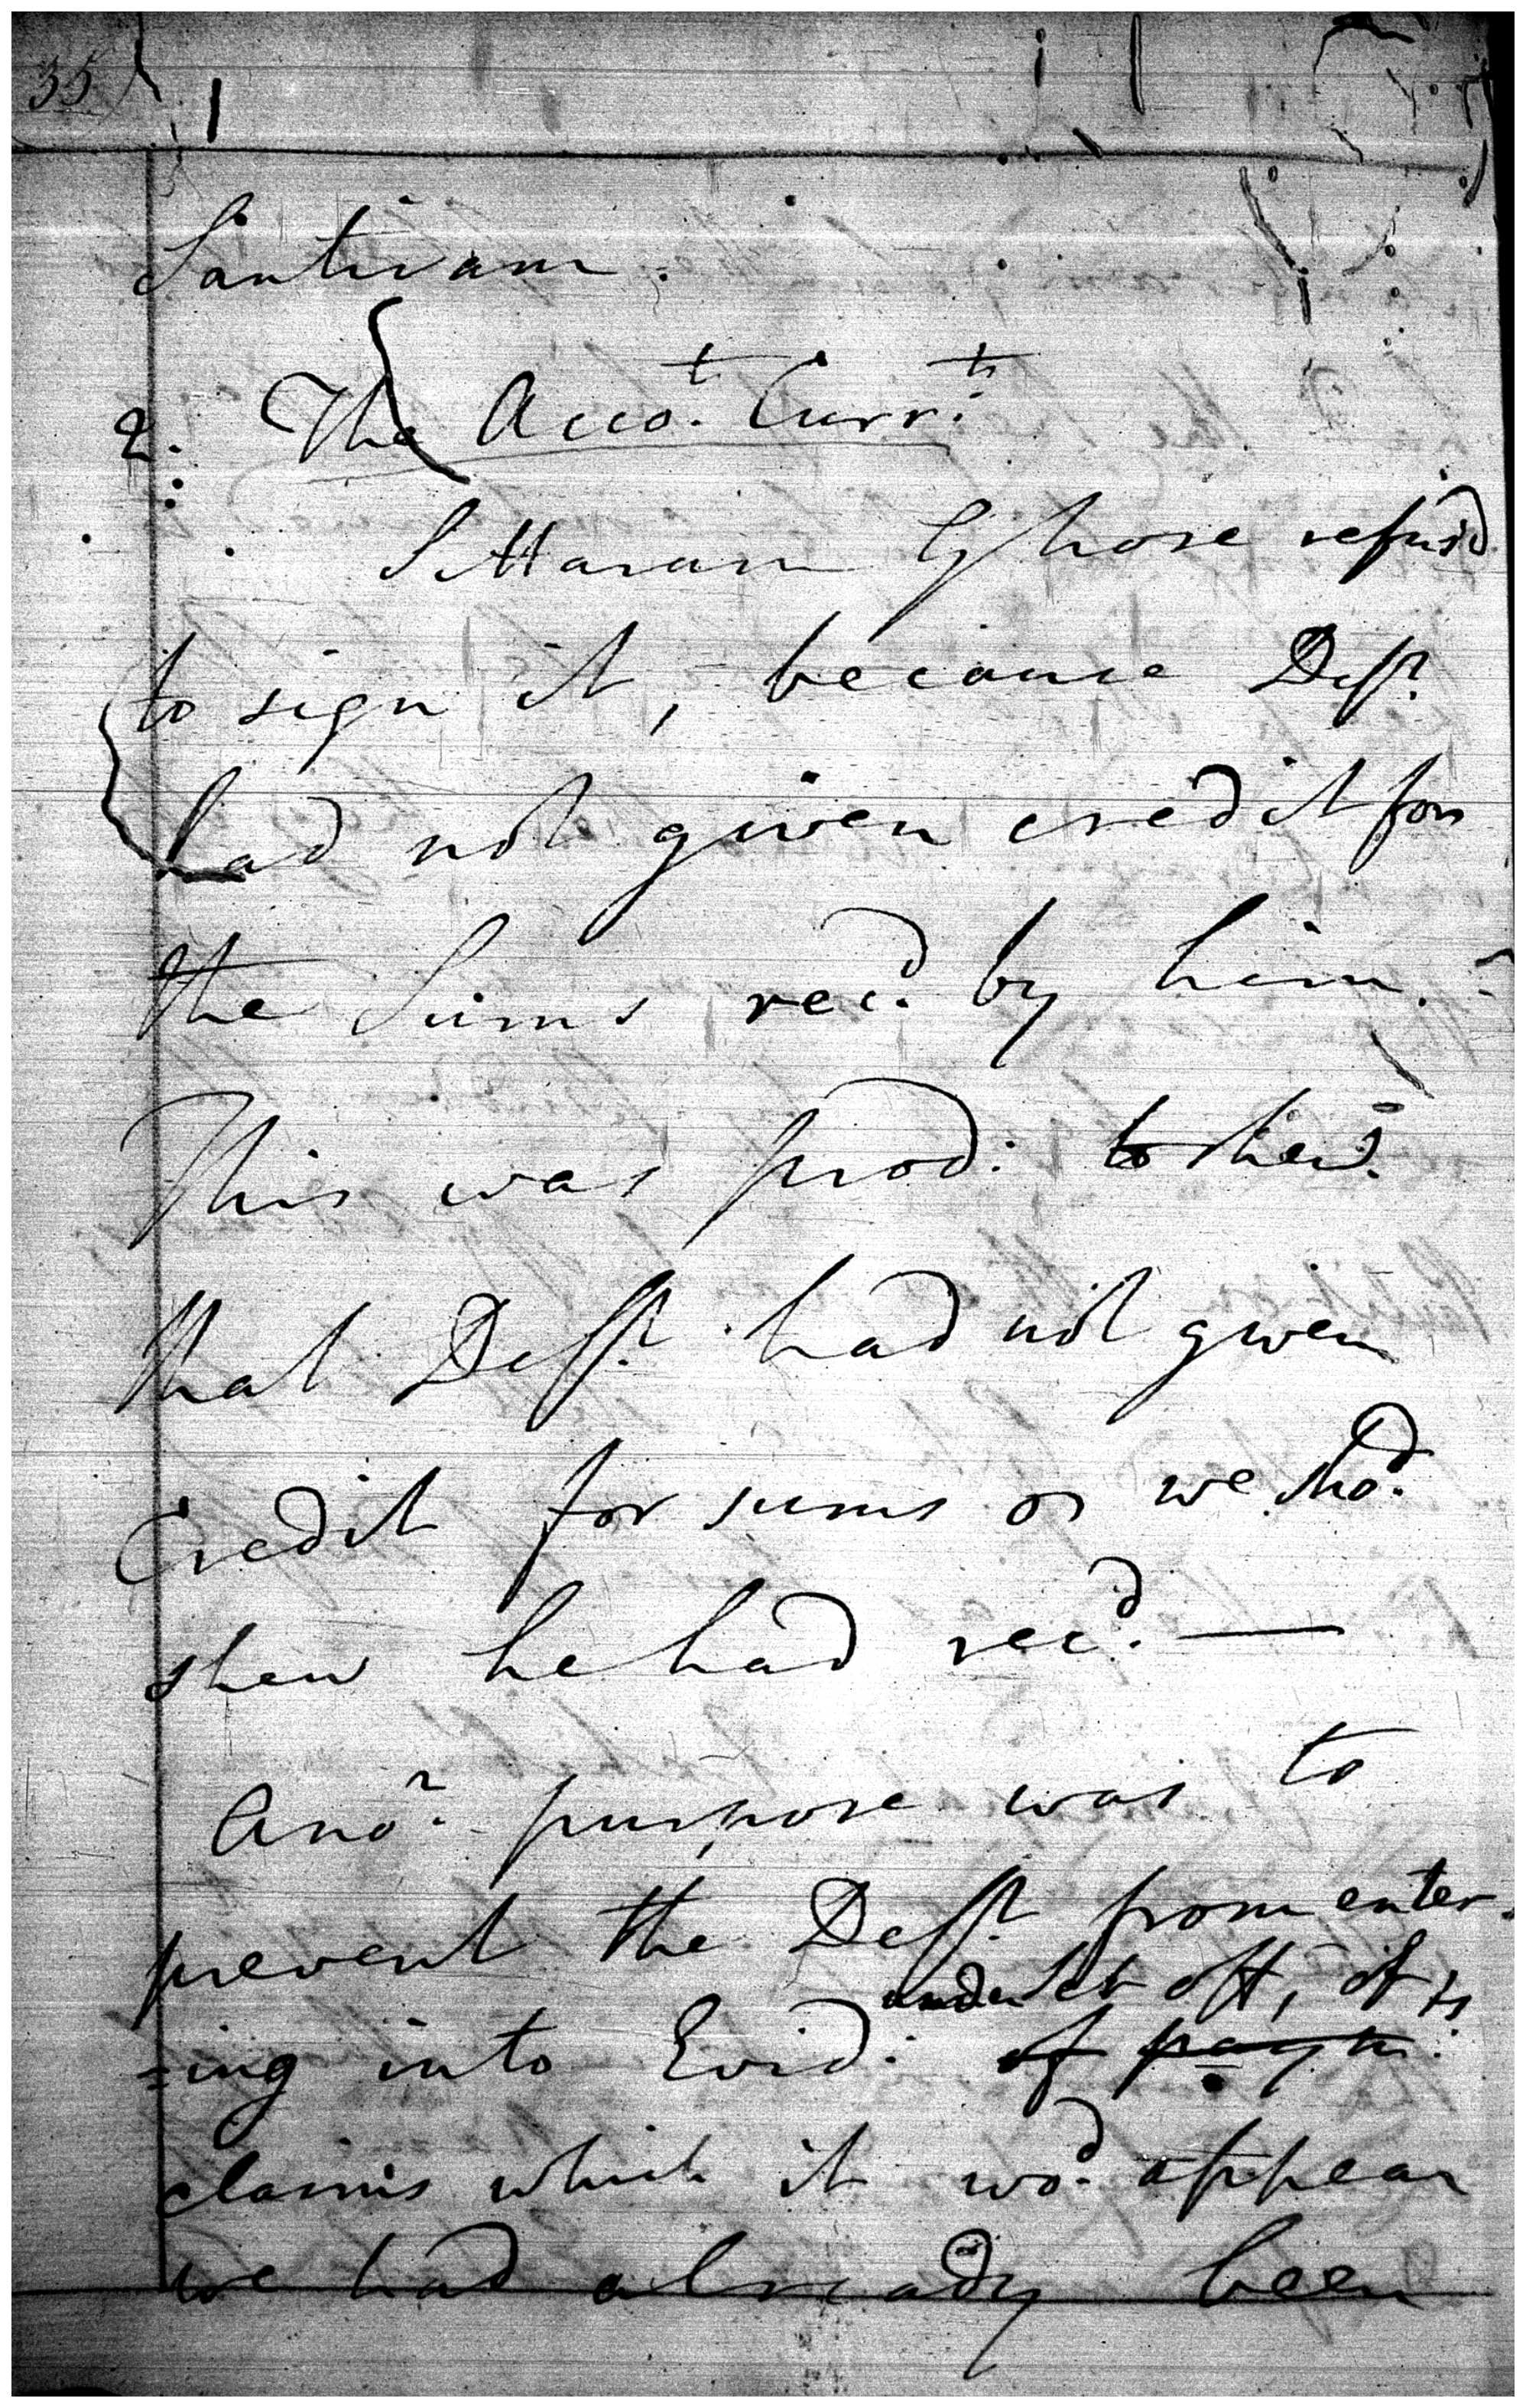 35
Santiram.
2. The Acco.t Curr.t
Sittaram Ghose refus'd
to sign it, because Deft.
had not given credit for
the Sums rec.d by him. -
This was prod: to shew
that Deft. had not given
Credit for sums or we sho.d
shew he had rec.d —
Ano.r purpose was to
prevent the Deft. from enter
=ing into Evid: of paym.ts
under Set off, of
claims which it wo.d appear
we had already been